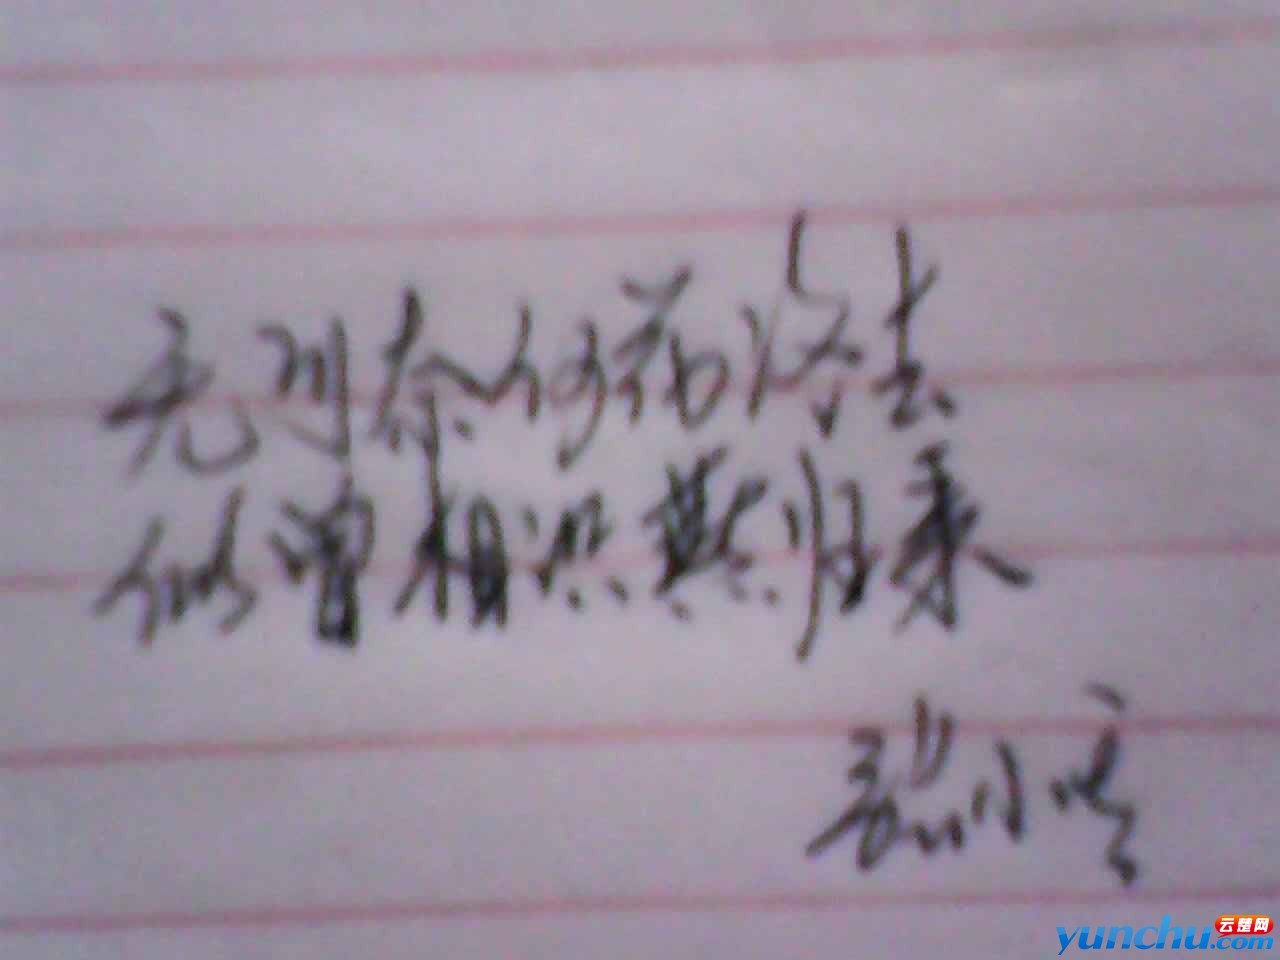 无可奈何花落去
似曾相识燕归来
小
云楚网
yunchu.com